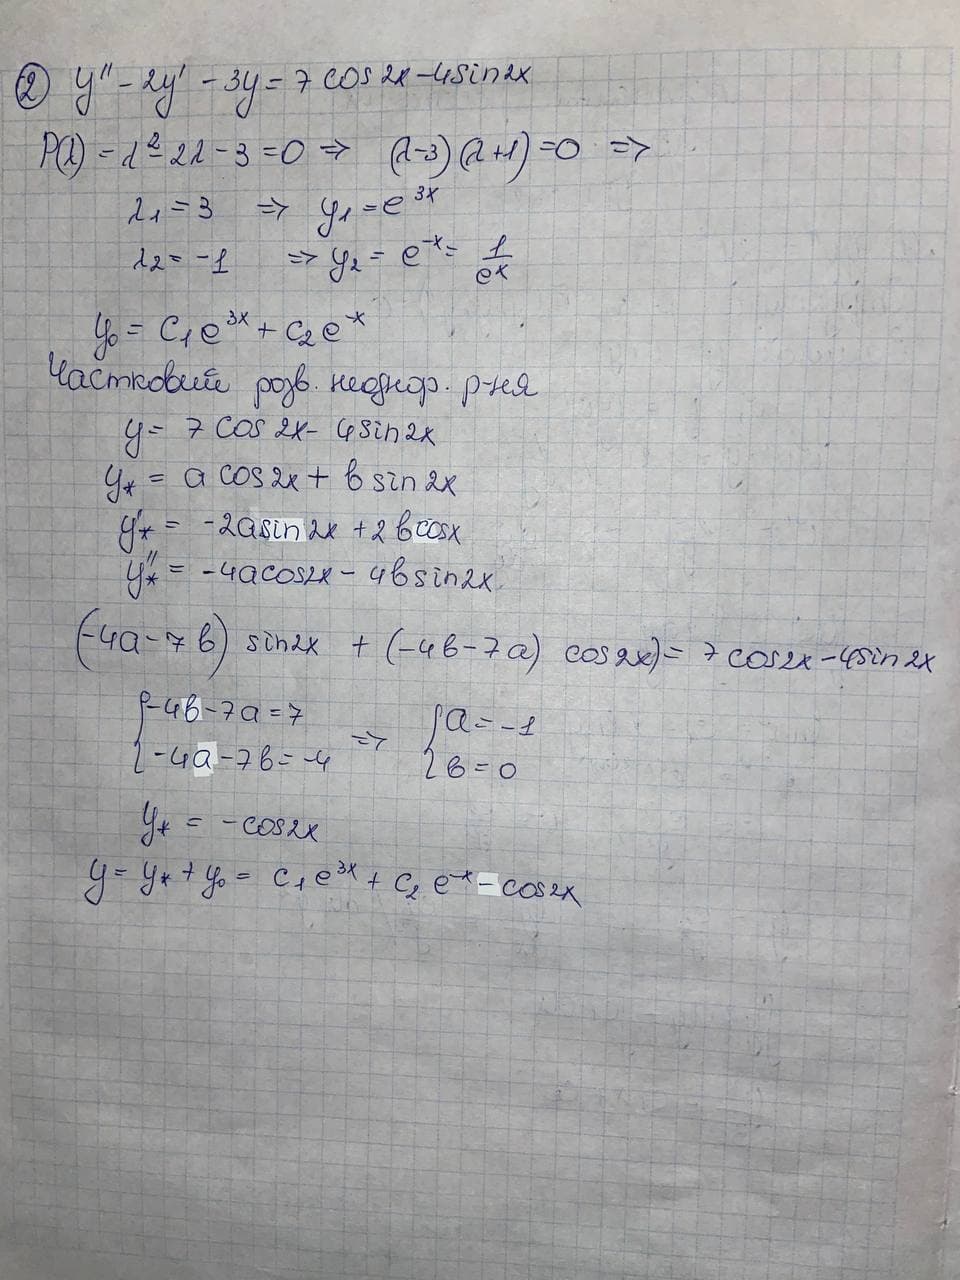 ② y'' - 2y' - 3y = 7 cos 2x - 4 sin 2x
P(λ) = λ² - 2λ - 3 = 0 ⇒ (λ-3)(λ+1) = 0 ⇒
λ₁ = 3 ⇒ y₁ = e^{3x}
λ₂ = -1 ⇒ y₂ = e^{-x} = 1/e^x
y₀ = C₁e^{3x} + C₂e^{-x}
Частковий розв. неоднор. р-ня
y = 7 cos 2x - 4 sin 2x
y* = a cos 2x + b sin 2x
y'* = -2a sin 2x + 2b cos x
y''* = -4a cos 2x - 4b sin 2x
(-4a - 7b) sin 2x + (-4b - 7a) cos 2x) = 7 cos 2x - 4 sin 2x
{ -4b - 7a = 7 ⇒ { a = -1
{ -4a - 7b = -4 { b = 0
y* = -cos 2x
y = y* + y₀ = C₁e^{3x} + C₂e^{-x} - cos 2x